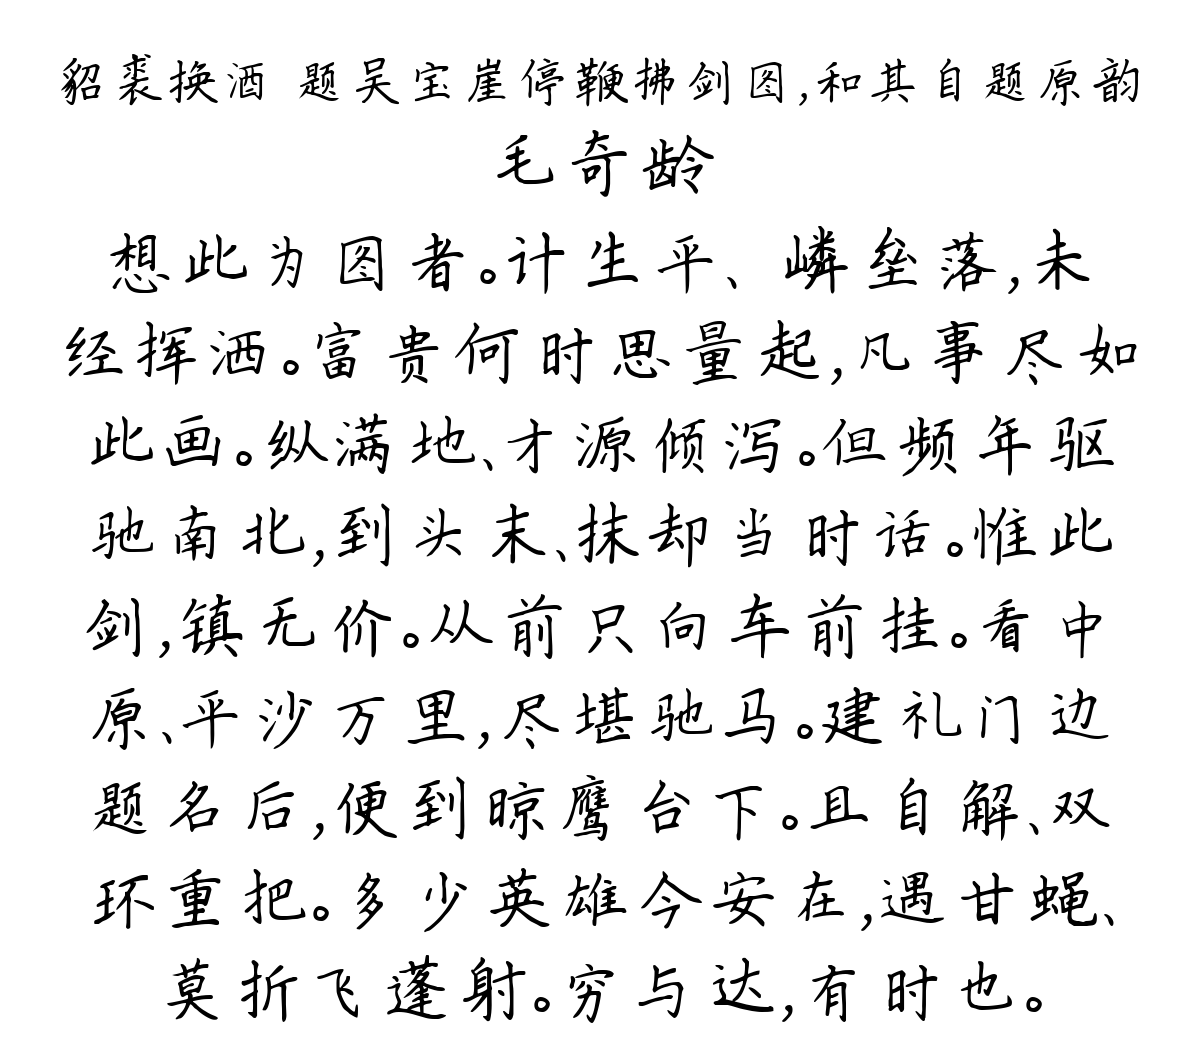 貂裘换酒 题吴宝崖停鞭拂剑图,和其自题原韵
毛奇龄
想此为图者。计生平、嶙垒落,未
经挥洒。富贵何时思量起,凡事尽如
此画。纵满地、才源倾泻。但频年驱
驰南北,到头末、抹却当时话。惟此
剑,镇无价。从前只向车前挂。看中
原、平沙万里,尽堪驰马。建礼门边
题名后,便到晾鹰台下。且自解、双
环重把。多少英雄今安在,遇甘蝇、
莫折飞蓬射。穷与达,有时也。